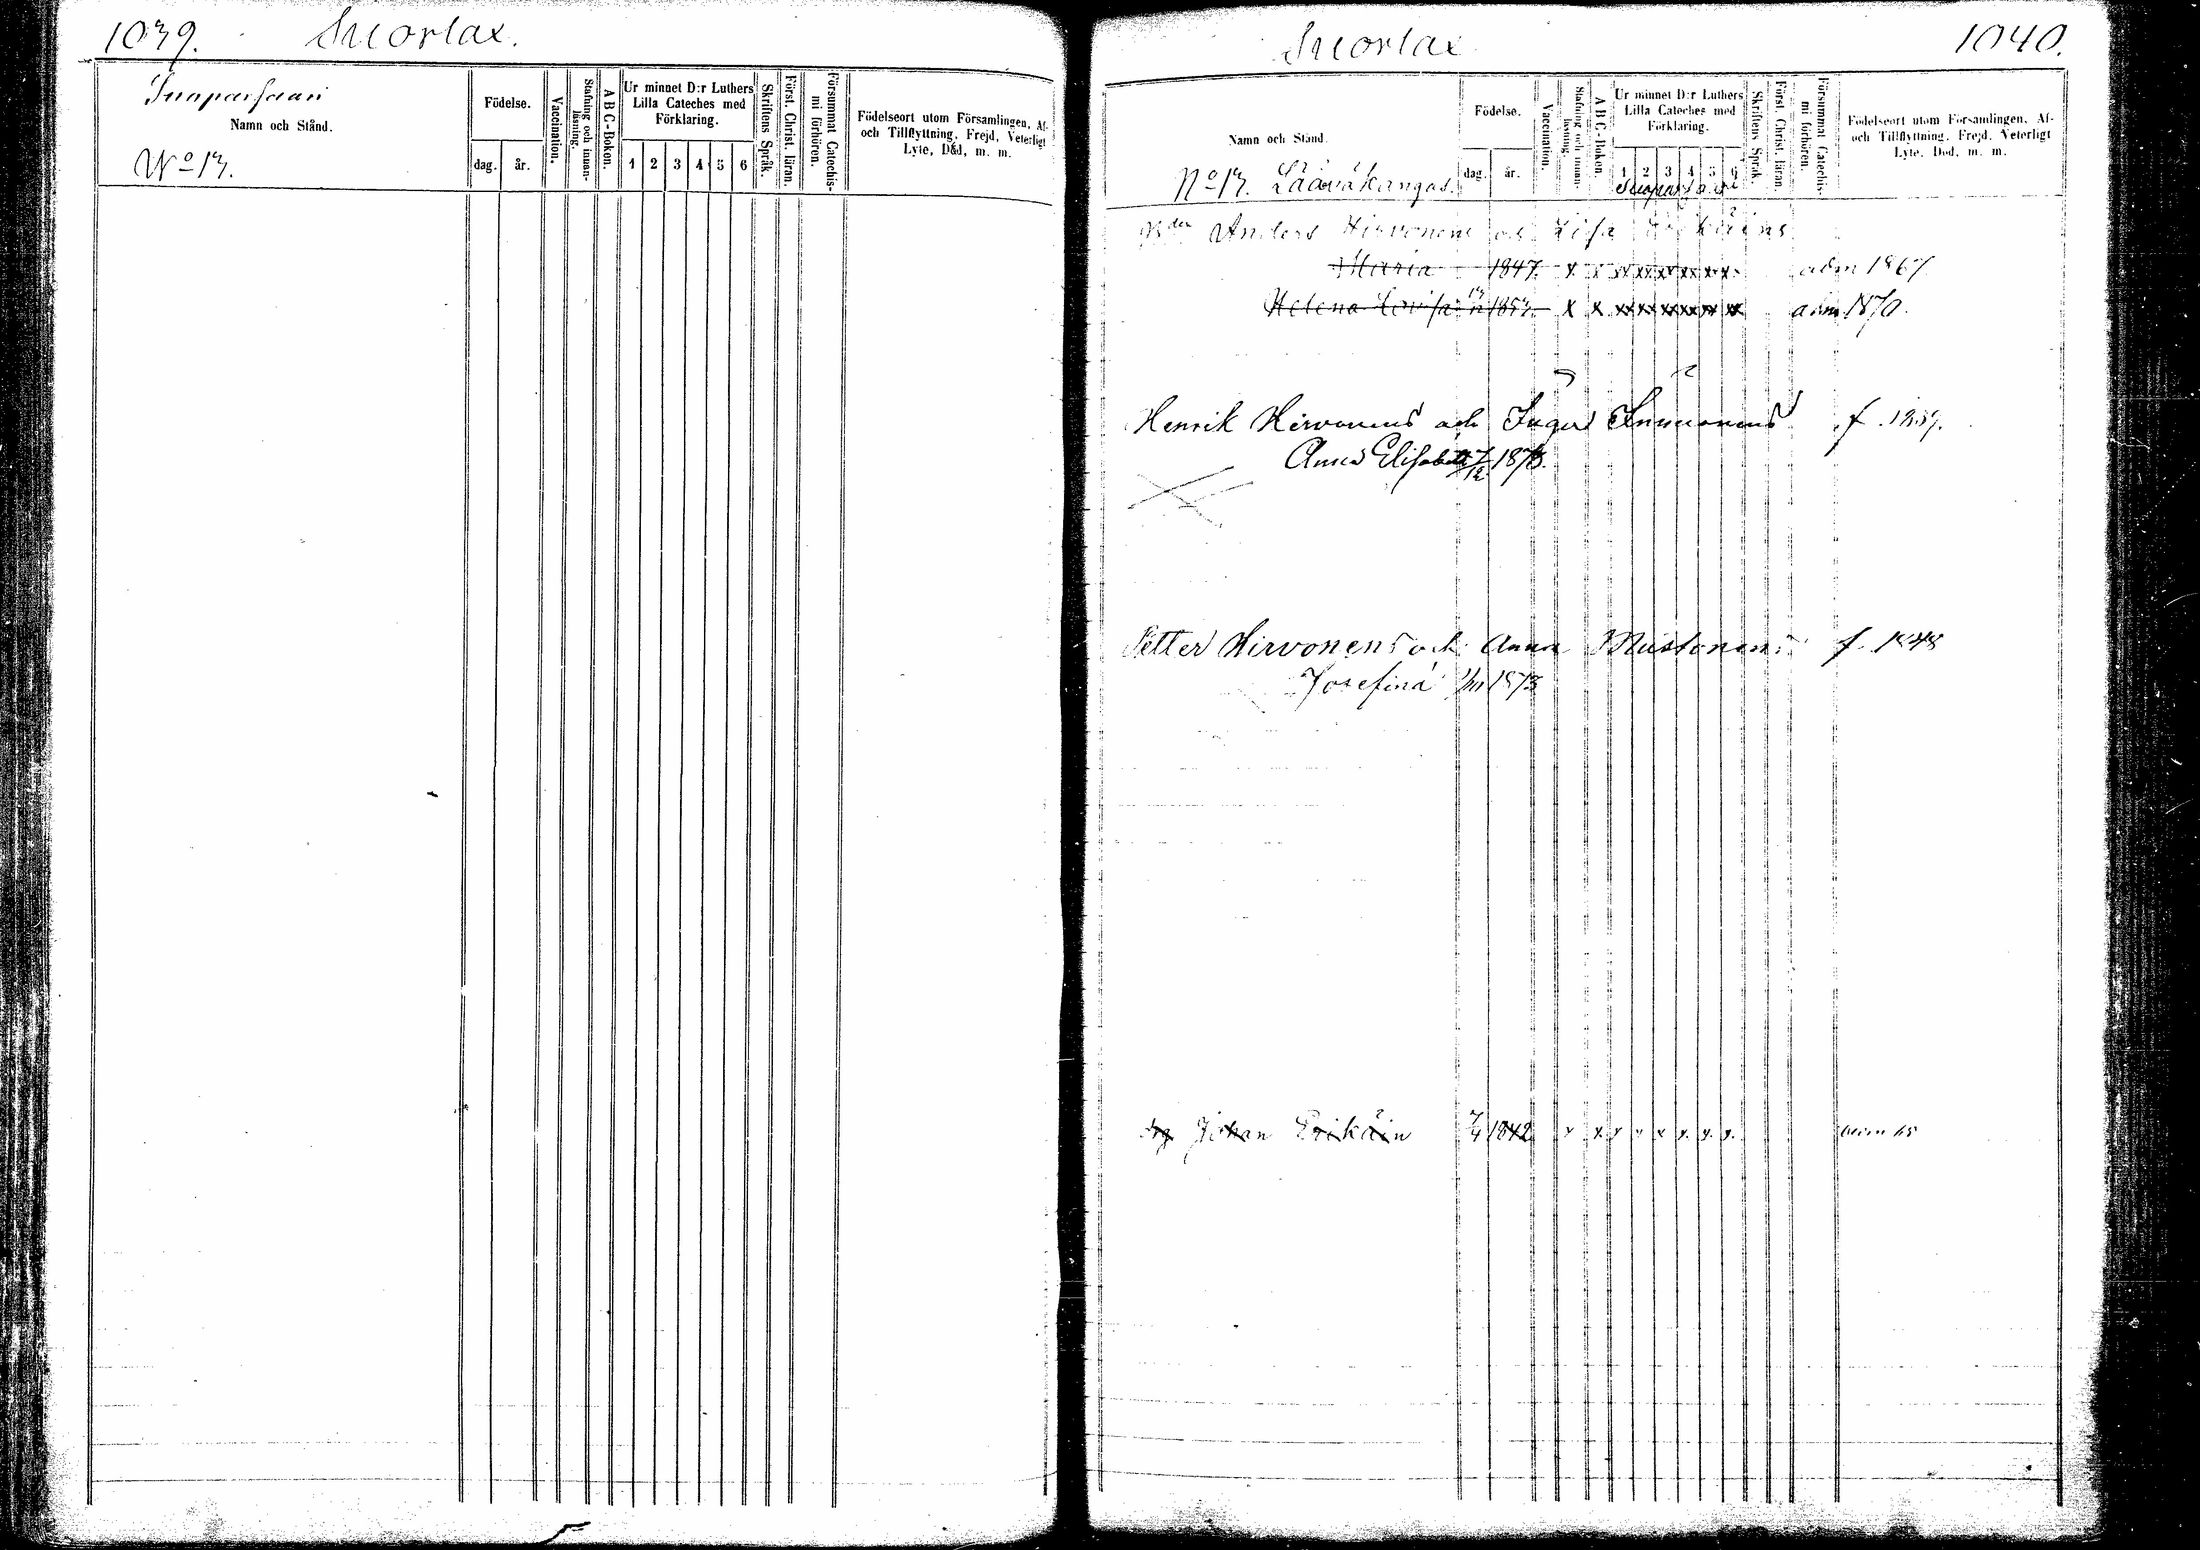 1039. Suorlax.
Suoparsaari
Namn och Stånd.
No 13.
Födelse.
dag. år.
Vaccination.
Stafning och innanläsning.
A B C-Boken.
Ur minnet D:r Luthers Lilla Cateches med Förklaring.
1 2 3 4 5 6
Skriftens Språk.
Först. Christ. läran.
Försummat Catechismi förhören.
Födelseort utom Församlingen, Af- och Tillflyttning, Frejd, Veterligt Lyte, Död, m. m.
Suorlax 1040.
Namn och Stånd.
No 13. Lääväkangas.
Födelse.
dag. år.
Vaccination.
Stafning och innanläsning.
A B C-Boken.
Ur minnet D:r Luthers Lilla Cateches med Förklaring.
1 2 3 4 5 6
Suoparsaari
Skriftens Språk.
Först. Christ. läran.
Försummat Catechismi förhören.
Födelseort utom Församlingen, Af- och Tillflyttning, Frejd, Veterligt Lyte, Död, m. m.
Anders Hirvonens och Lisa
Maria 1847. x x xx xx xx xx xx adm 1867
Helena Lovisa 1853. x x xx xx xx xx xx xx adm 1870.
Henrik Hirvonens och Inger f. 1839.
Anna Elisabeth 7/12 1873.
Petter Hirvonens och Anna Mustonens f. 1848
Josefina 1/11 1873
drg Johan Erikäin 7/4 1842 x x x x x x x x